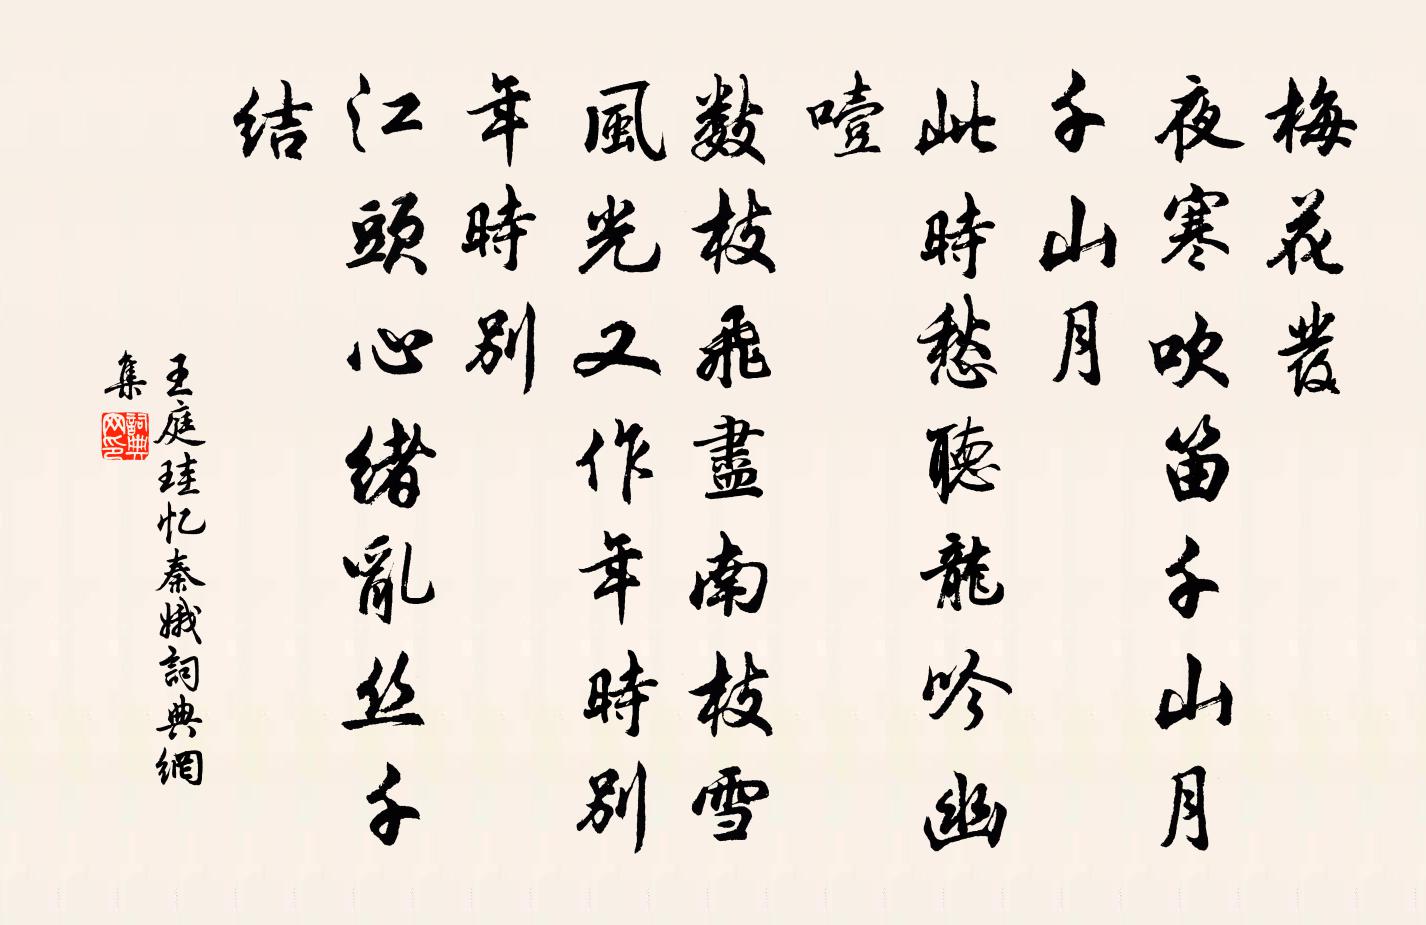 梅花發
夜寒吹笛千山月
千山月
此時愁聽龍吟幽
噎
数枝飛盡南枝雪
風光又作年時別
年時別
江頭心緒亂丝千
结
王庭珪忆秦娥詞典網
集
詞典
网印